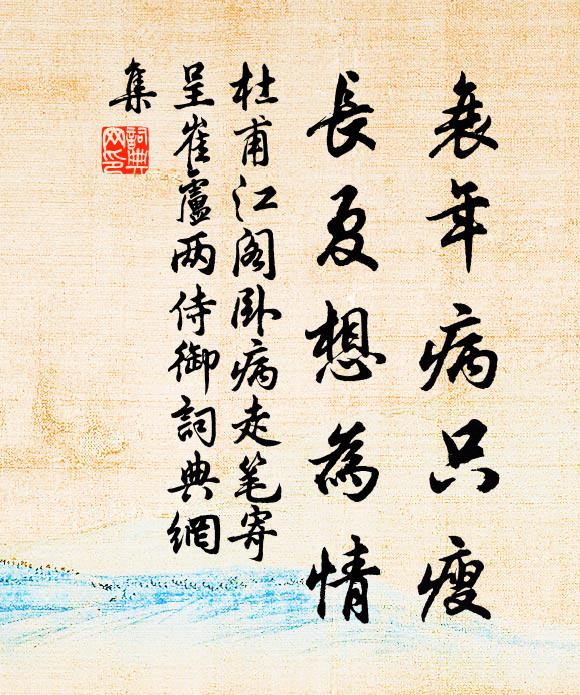 衰年病只瘦
長夏想為情
杜甫江阁卧病走笔寄
呈崔盧两侍御詞典網
集
詞典
网印